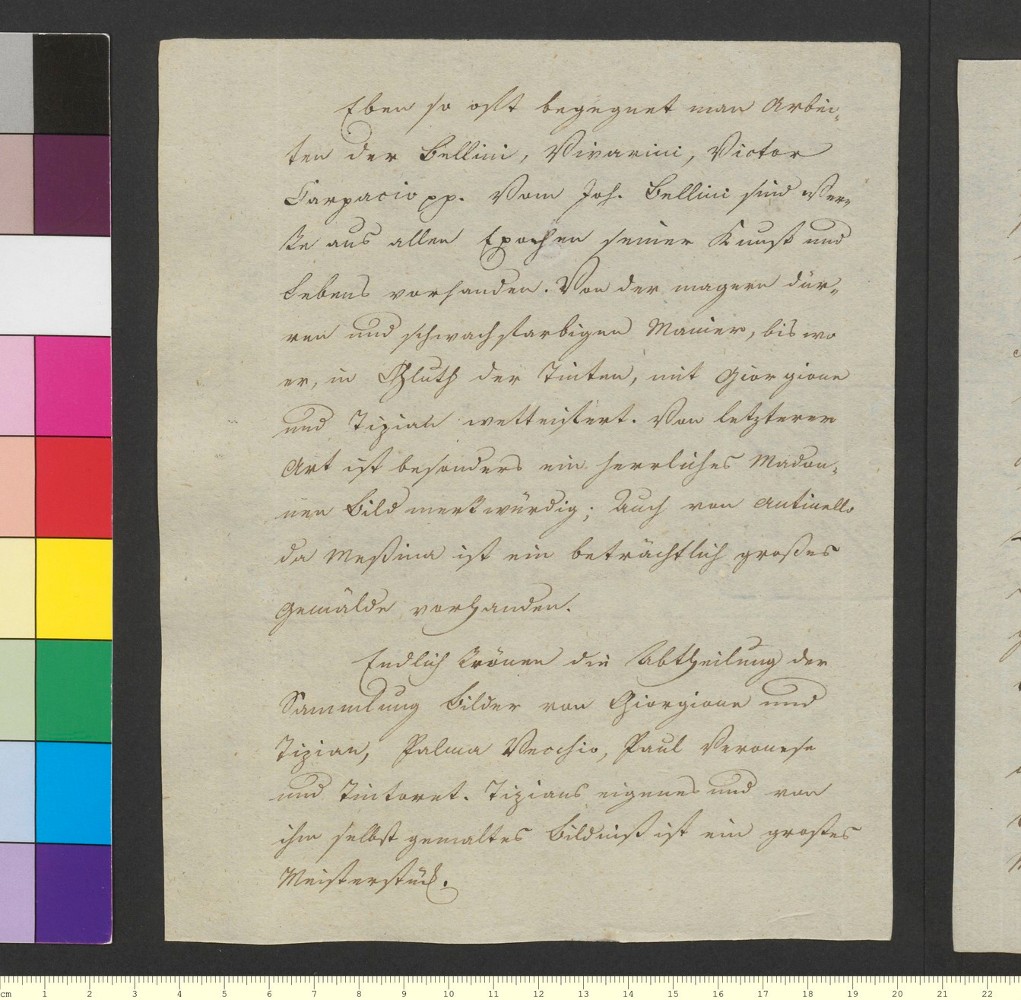 Eben so oft begegnet man Arbei-
ten der Bellini, Vivarini, Victor
Carpacio pp. Vom Joh. Bellini sind Wer-
ke aus allen Epochen seiner Kunst und
Lebens vorhanden. Von der magern dür-
ren und schwachfarbigen Manier, bis wo
er, in Gluth der Tinten, mit Giorgione
und Tizian wetteifert. Von letzterer
Art ist besonders ein herrliches Madon-
nen Bild merkwürdig; Auch von Antinello
da Meßina ist ein beträchtlich großes
Gemälde vorhanden.
Endlich krönen die Abtheilung der
Sammlung Bilder von Giorgione und
Tizian, Palma Vecchio, Paul Veronese
und Tintoret. Tizians eigenes und von
ihm selbst gemaltes Bildniß ist ein großes
Meisterstück.
cm 1 2 3 4 5 6 7 8 9 10 11 12 13 14 15 16 17 18 19 20 21 22